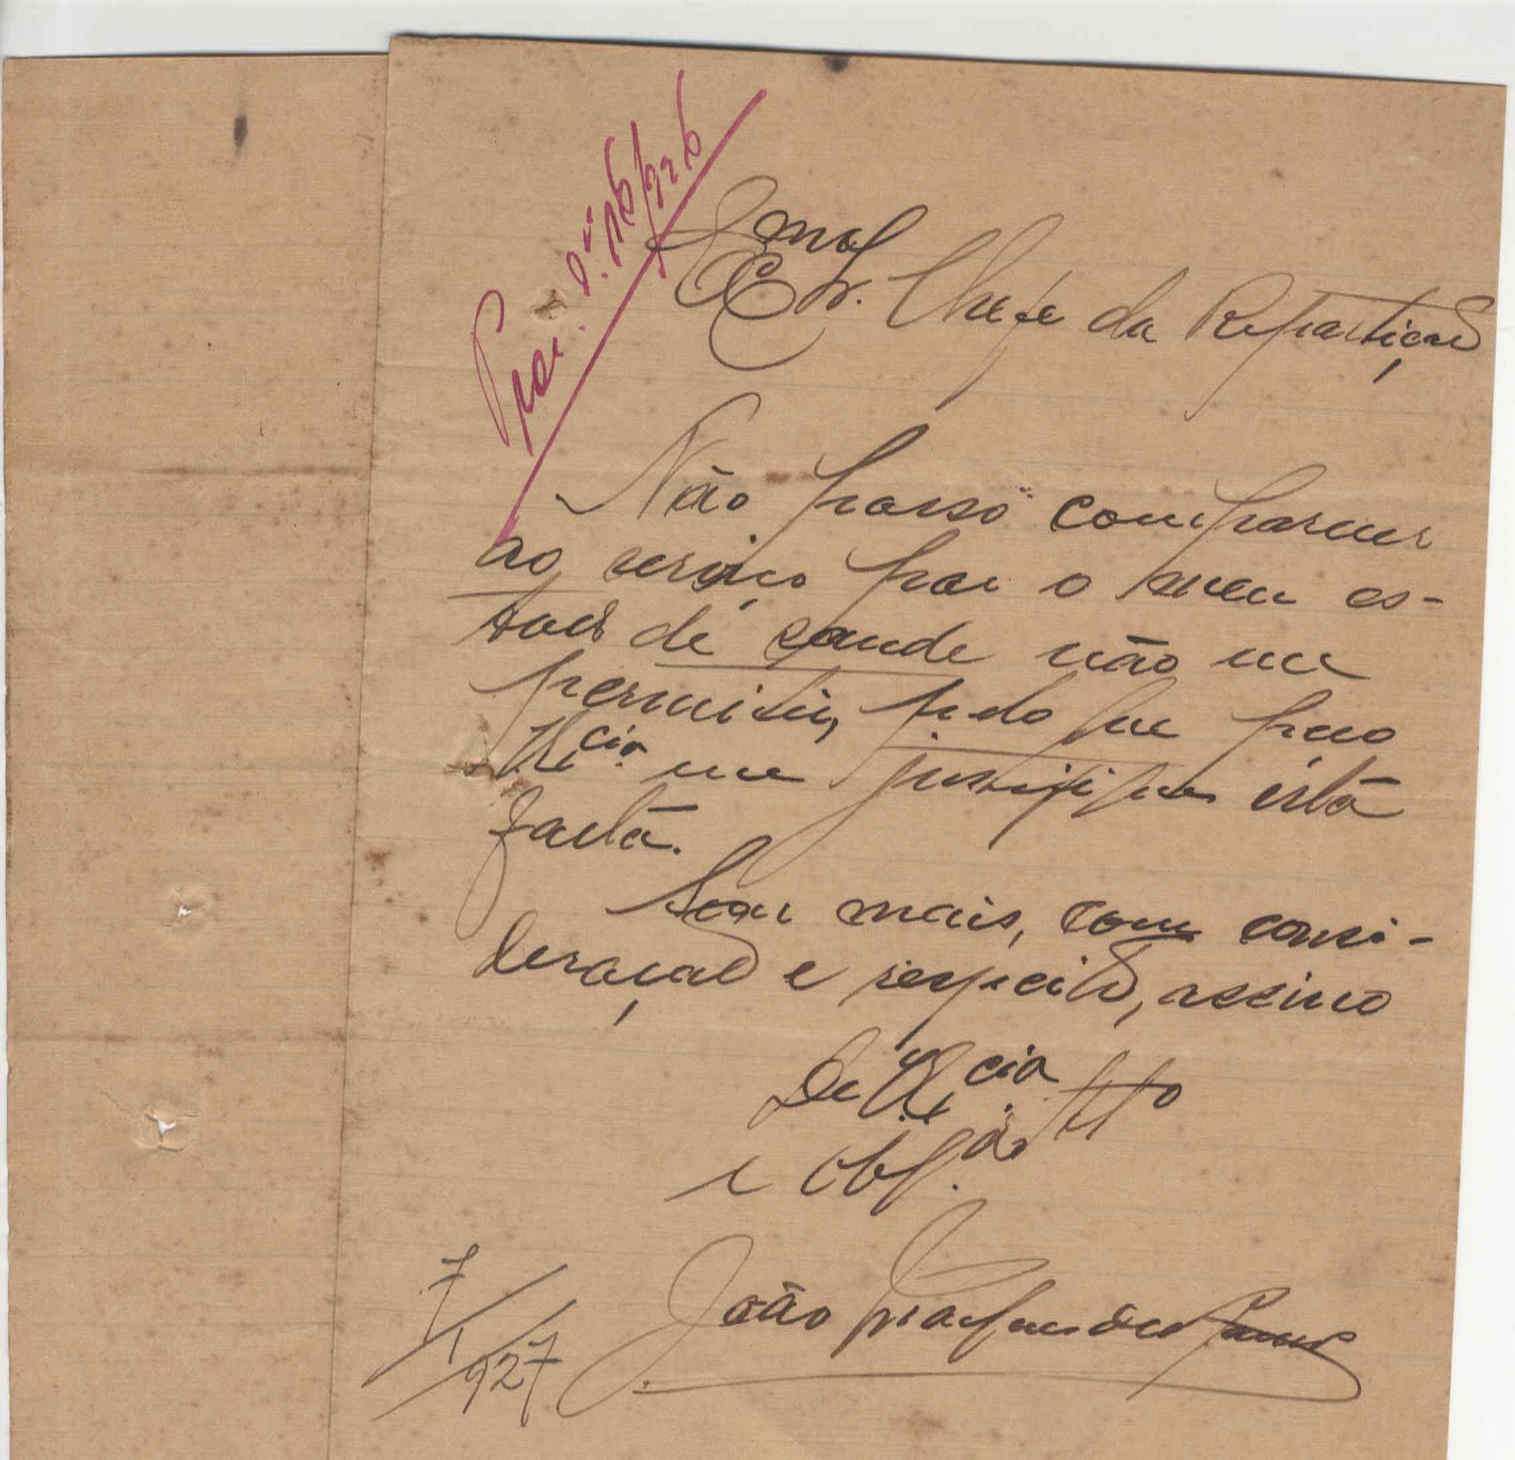 Proc. nº. 116/926
Exmo
Sr. Chefe da Repartição
Não posso comparecer
ao serviço por o meu es-
tado de saude não me
permitir, pelo que peço
V. Ex.cia me justifique esta
falta.
Sem mais, com consi-
deração e respeito, assino
De V. Ex.cia
Atto
e Obg.do
João
7/1/927